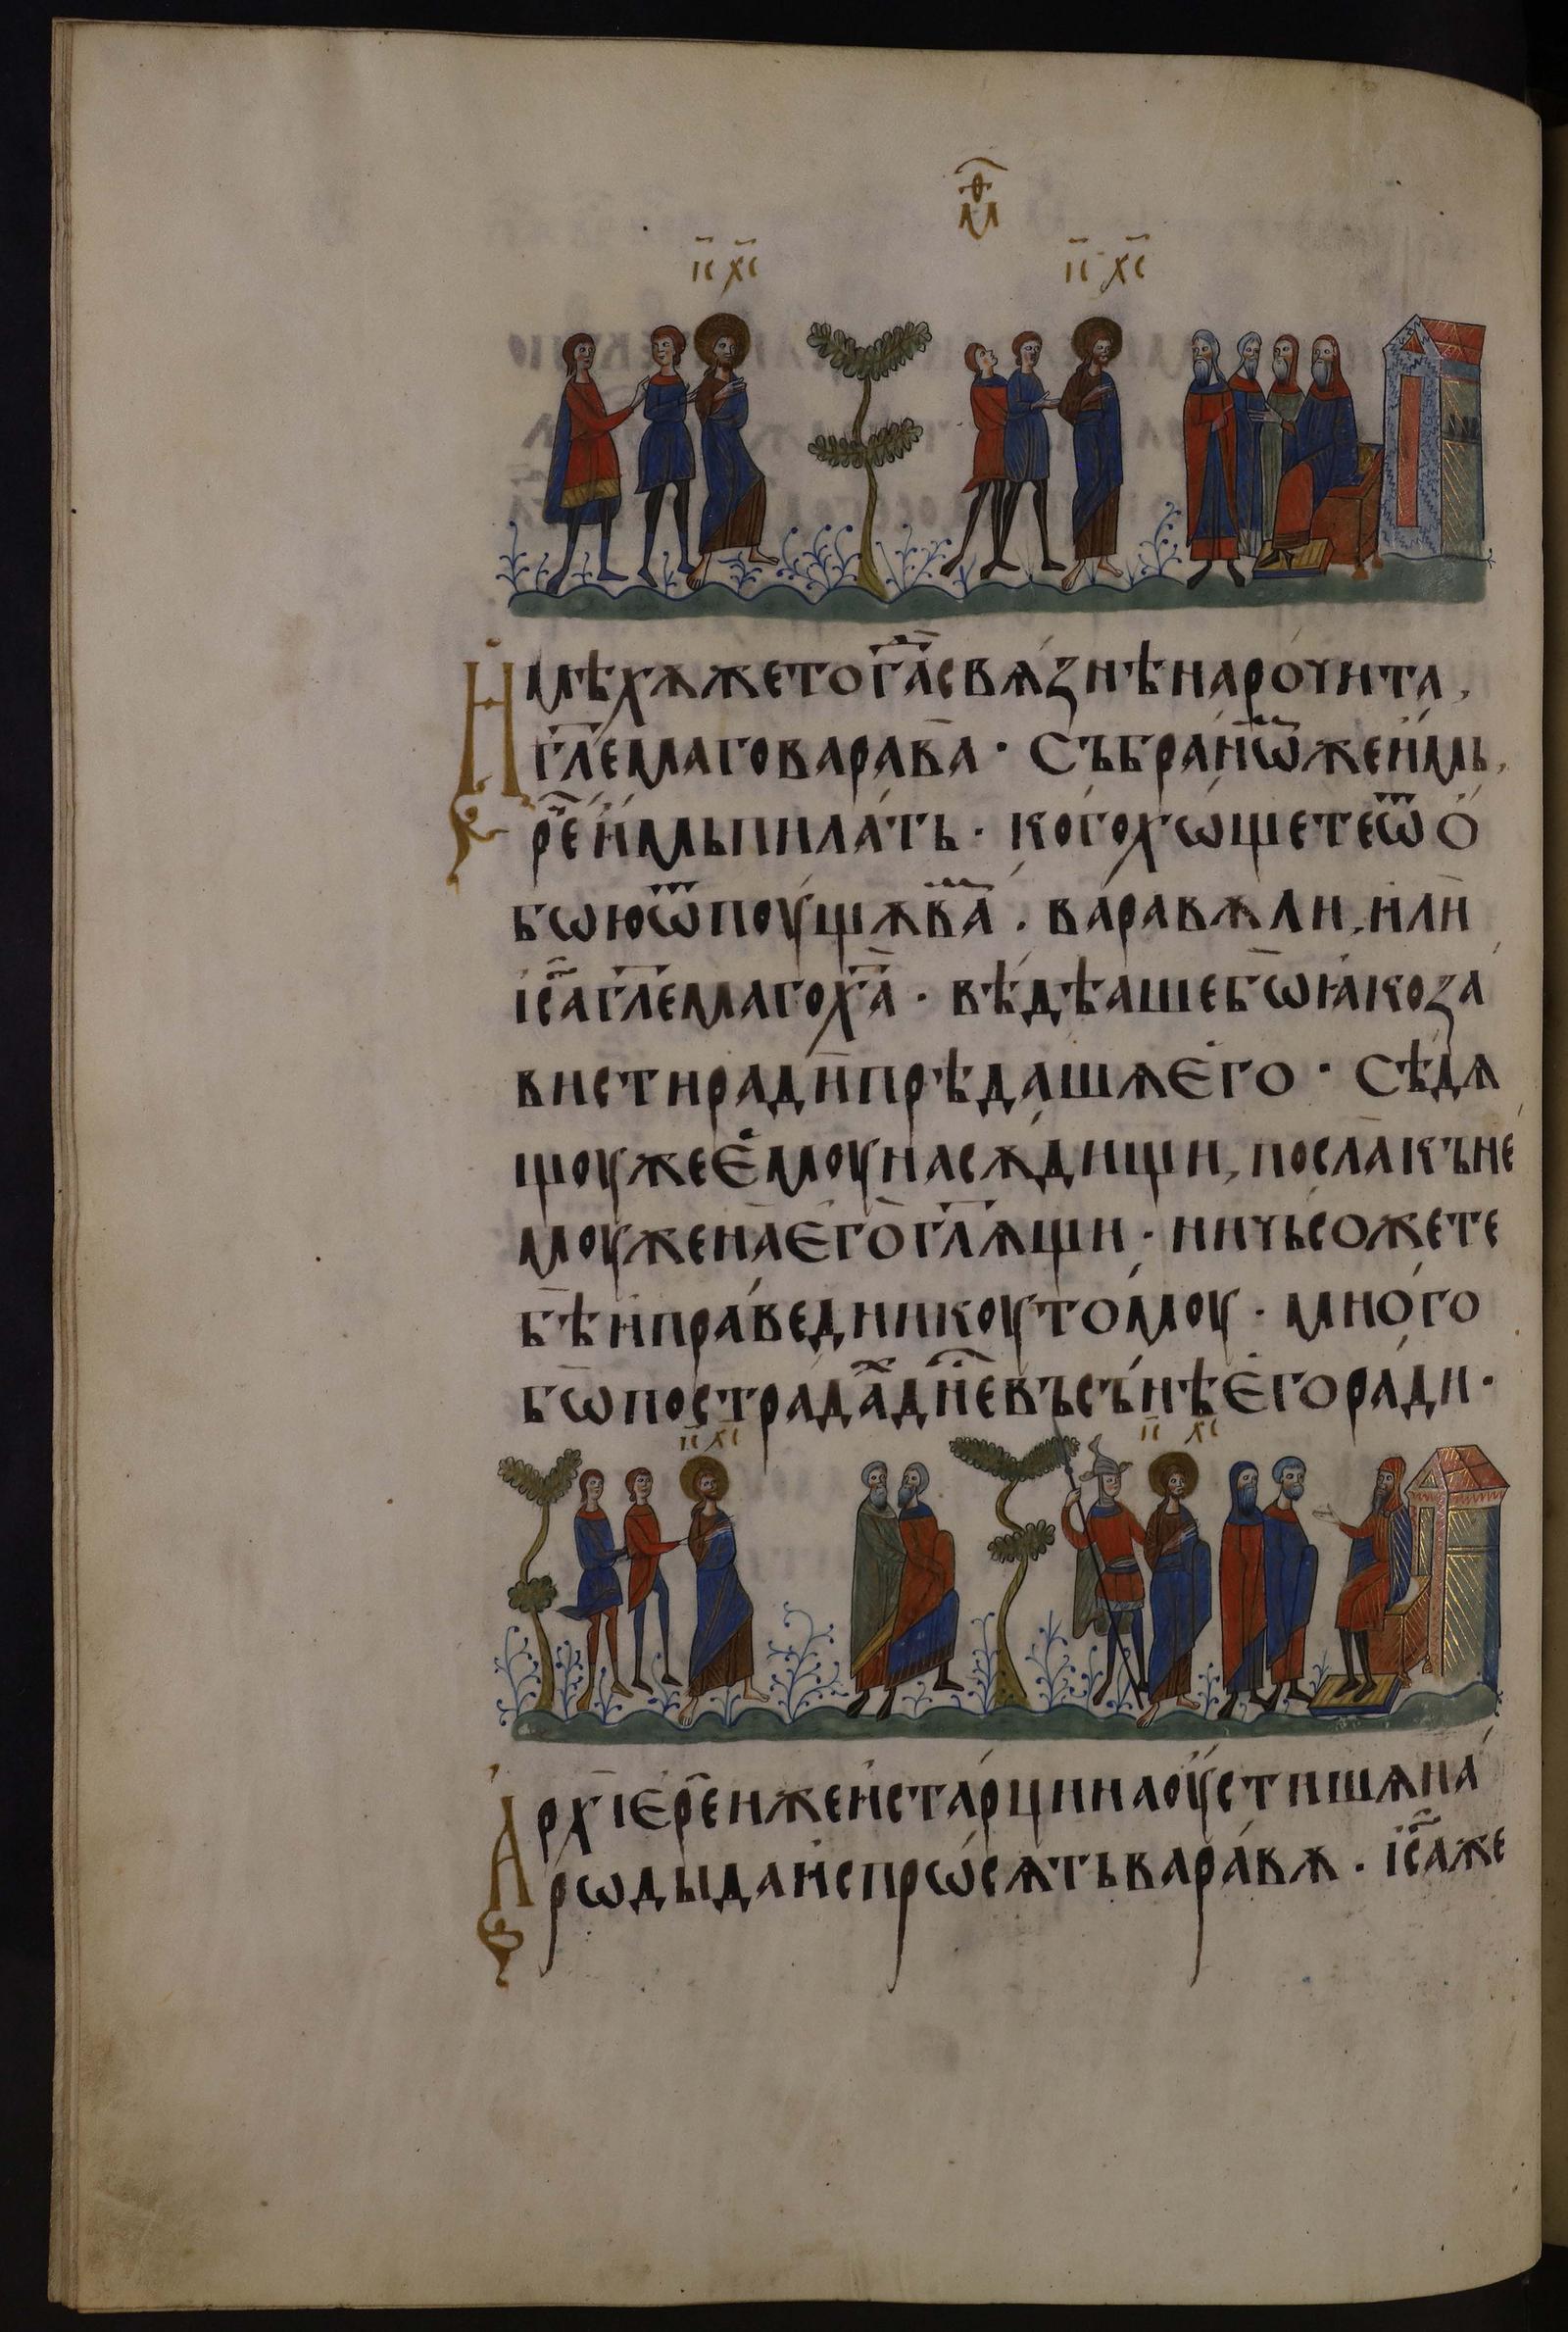 м҃ѳ
і҃с х҃с
і҃с х҃с
Имѣхѫжетог҃дасвѧзнѣнарочита,
г҃лемаговаравⷡа · Събраⷩ҇ѿжеимь,
реⷱ҇имьпилать · когохѡщетеѿо
бѡюѿпоущѫваⷨ · варавѫли, или
і҃саг҃лемагох҃а · вѣдѣашебѡꙗкоза
вистирадипрѣдашѧего · Сѣдѧ
щоужеемоунасѫдищи, послакъне
моуженаегог҃лѧщи · ничьсожете
бѣиправедникоутомоу · много
бѡпострадаⷯд҃несвъсънѣегоради ·
і҃с х҃с
і҃с х҃с
Архіереижеистарцинаоустишѧна
рѡдыдаиспрѡсѧтьваравѫ · і҃саже